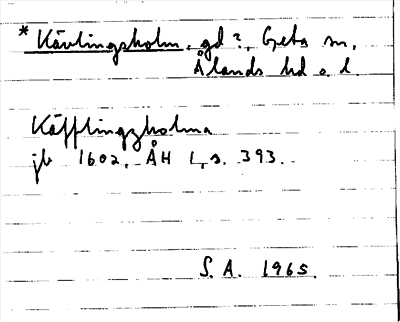 * Kävlingsholm, gd?, Geta sn,
Ålands hd o. l.
Käfflingzholma
jb 1602. ÅH 1, s. 393.
S. A. 1965.